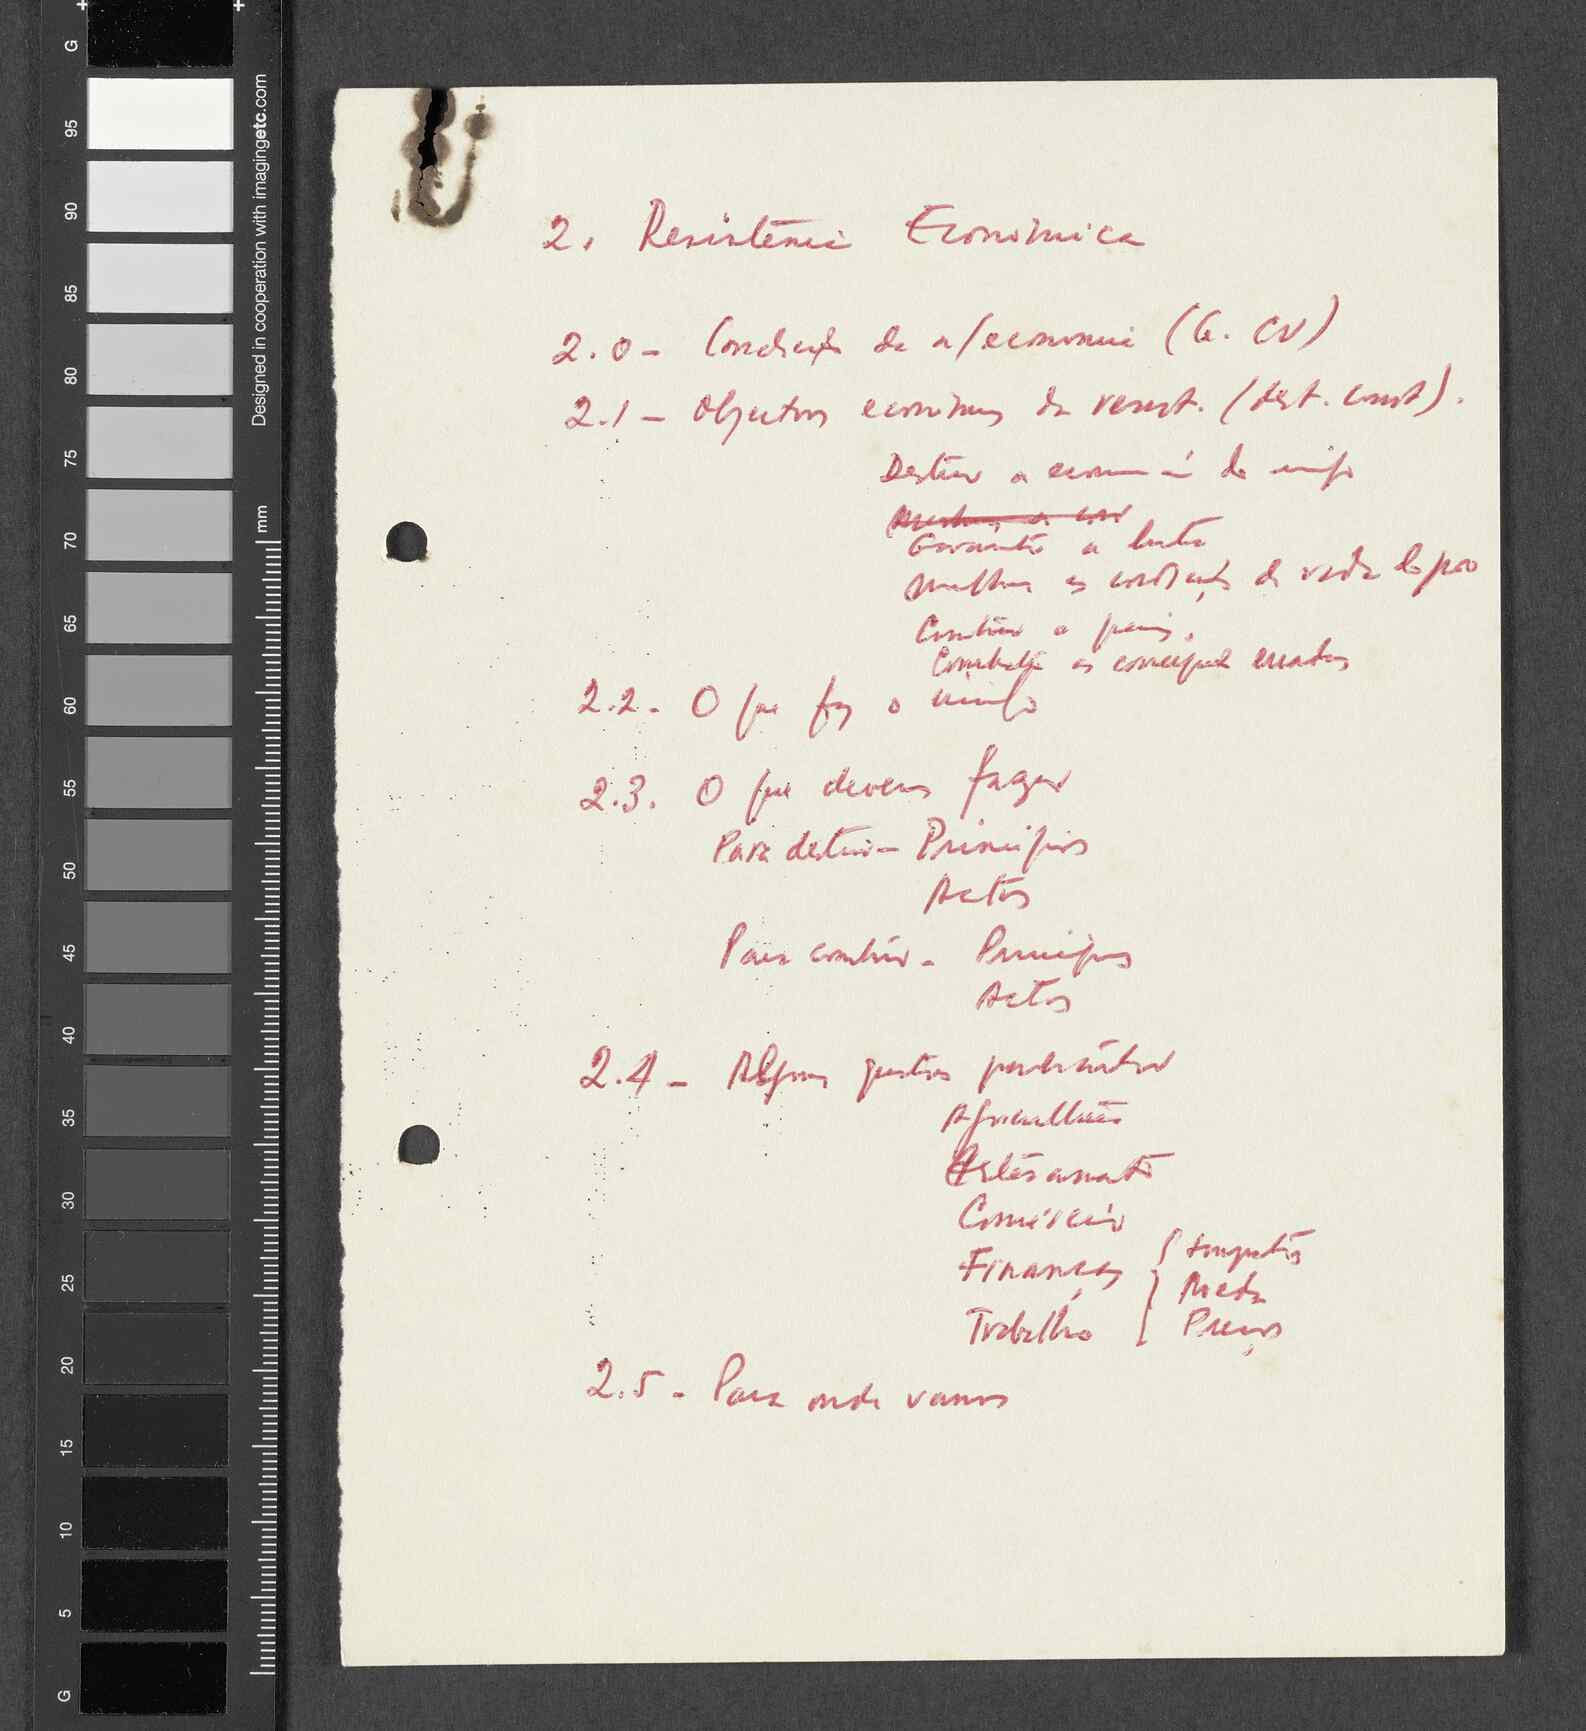 2. Resistência Económica
2.0 - Condições da n/economia (G. CV)
2.1 - Objectivos económicos da resist. (dest. const).
Destruir a economia do inimigo
Garantir a luta
Melhorar as condições de vida do povo
Construir o país.
Combater as concepções erradas
2.2. O que faz o inimigo
2.3. O que devemos fazer
Para destruir - Princípios
Actos
Para construir - Princípios
Actos
2.4 - Algumas questões
Agricultura
Artesanato
Comércio
Finanças { Impostos
Moeda
Trabalho Preços
2.5 - Para onde vamos
G
95
90
85
80
75
70
65
60
55
50
45
40
35
30
25
20
15
10
5
G
Designed in cooperation with imagingetc.com
mm